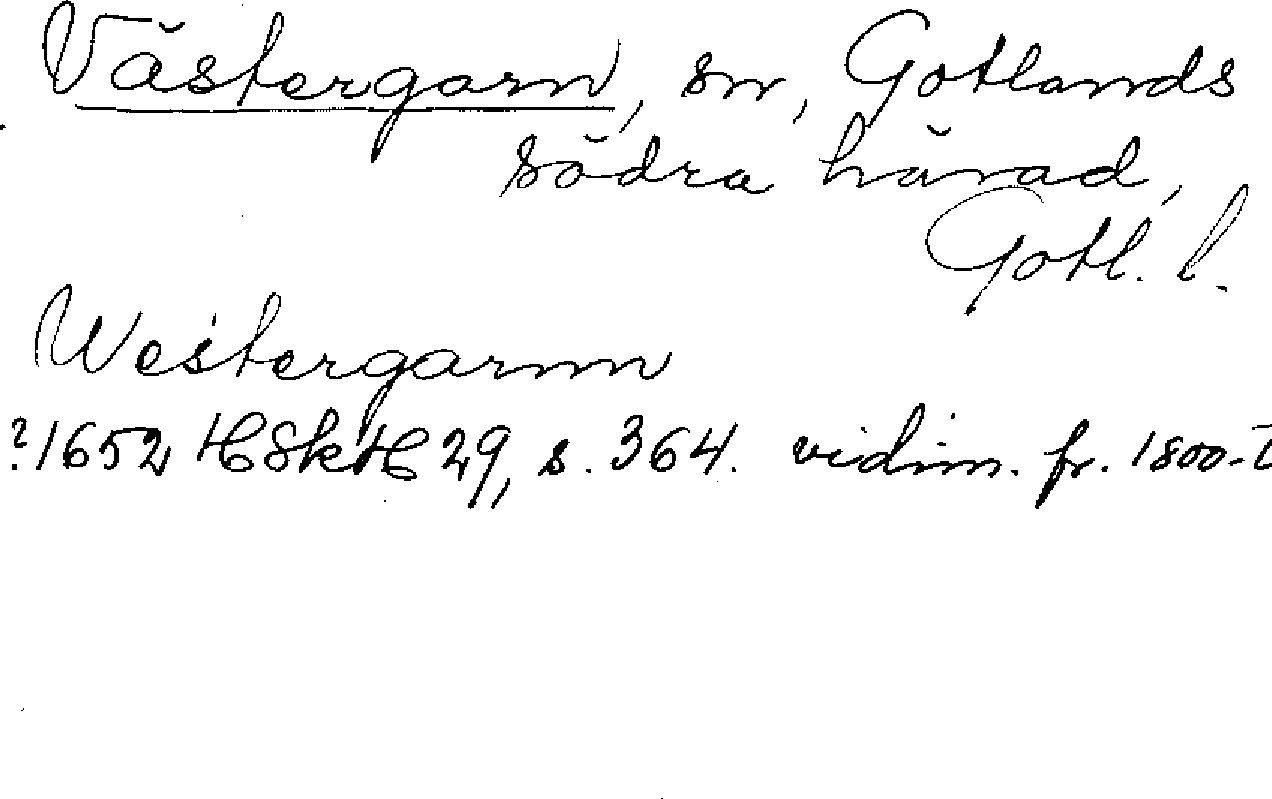 Västergarn, sn, Gotlands
södra härad,
Gotl. l.
Westergarnn
?1652 HSkH 29, s. 364. vidim. fr. 1800-t